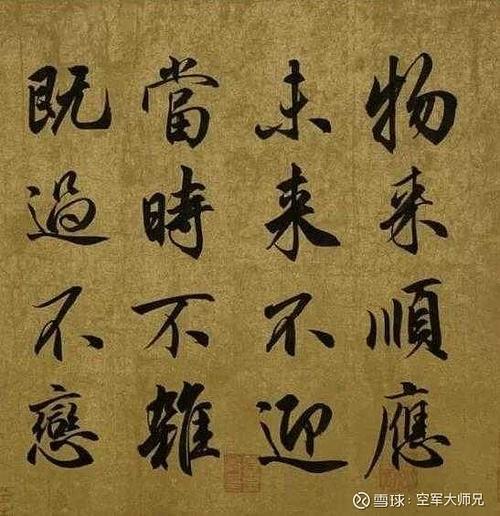 物来順應
未来不迎
當時不雜
既過不戀
雪球：空军大师兄